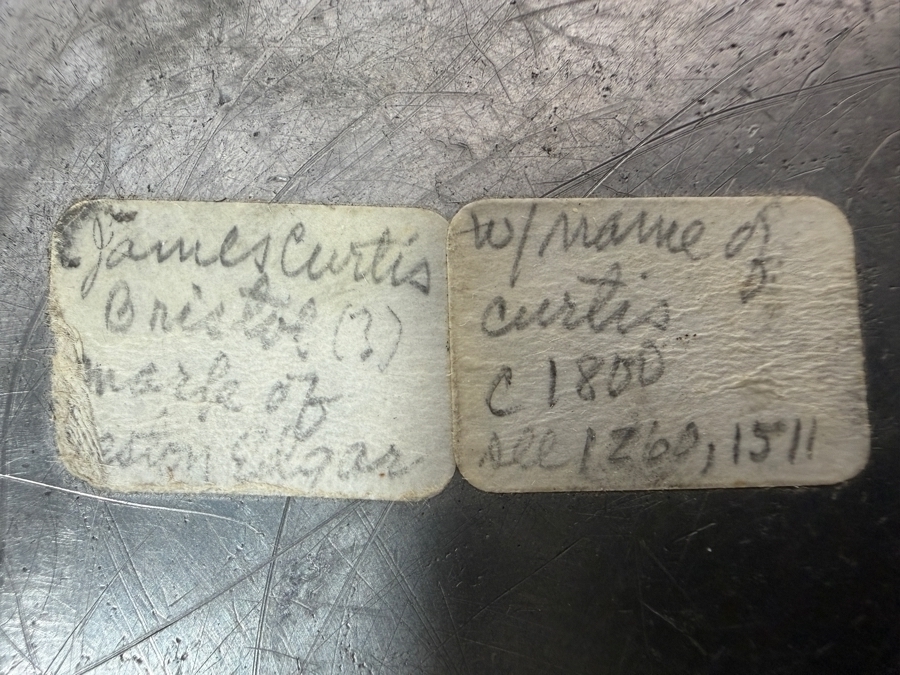 James Curtis
Bristol (?)
mark of
Edgar
w/ name of
curtis
c 1800
see 1260, 1511